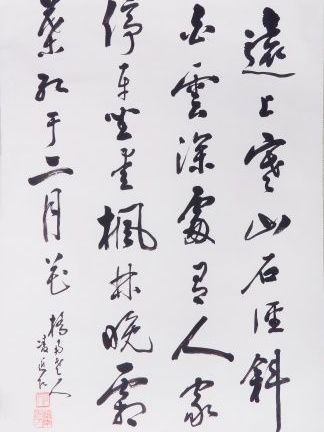 遠上寒山石徑斜
白雲深處有人家
停車坐愛楓林晚霜
葉紅于二月花
橋南老人
凌近仁